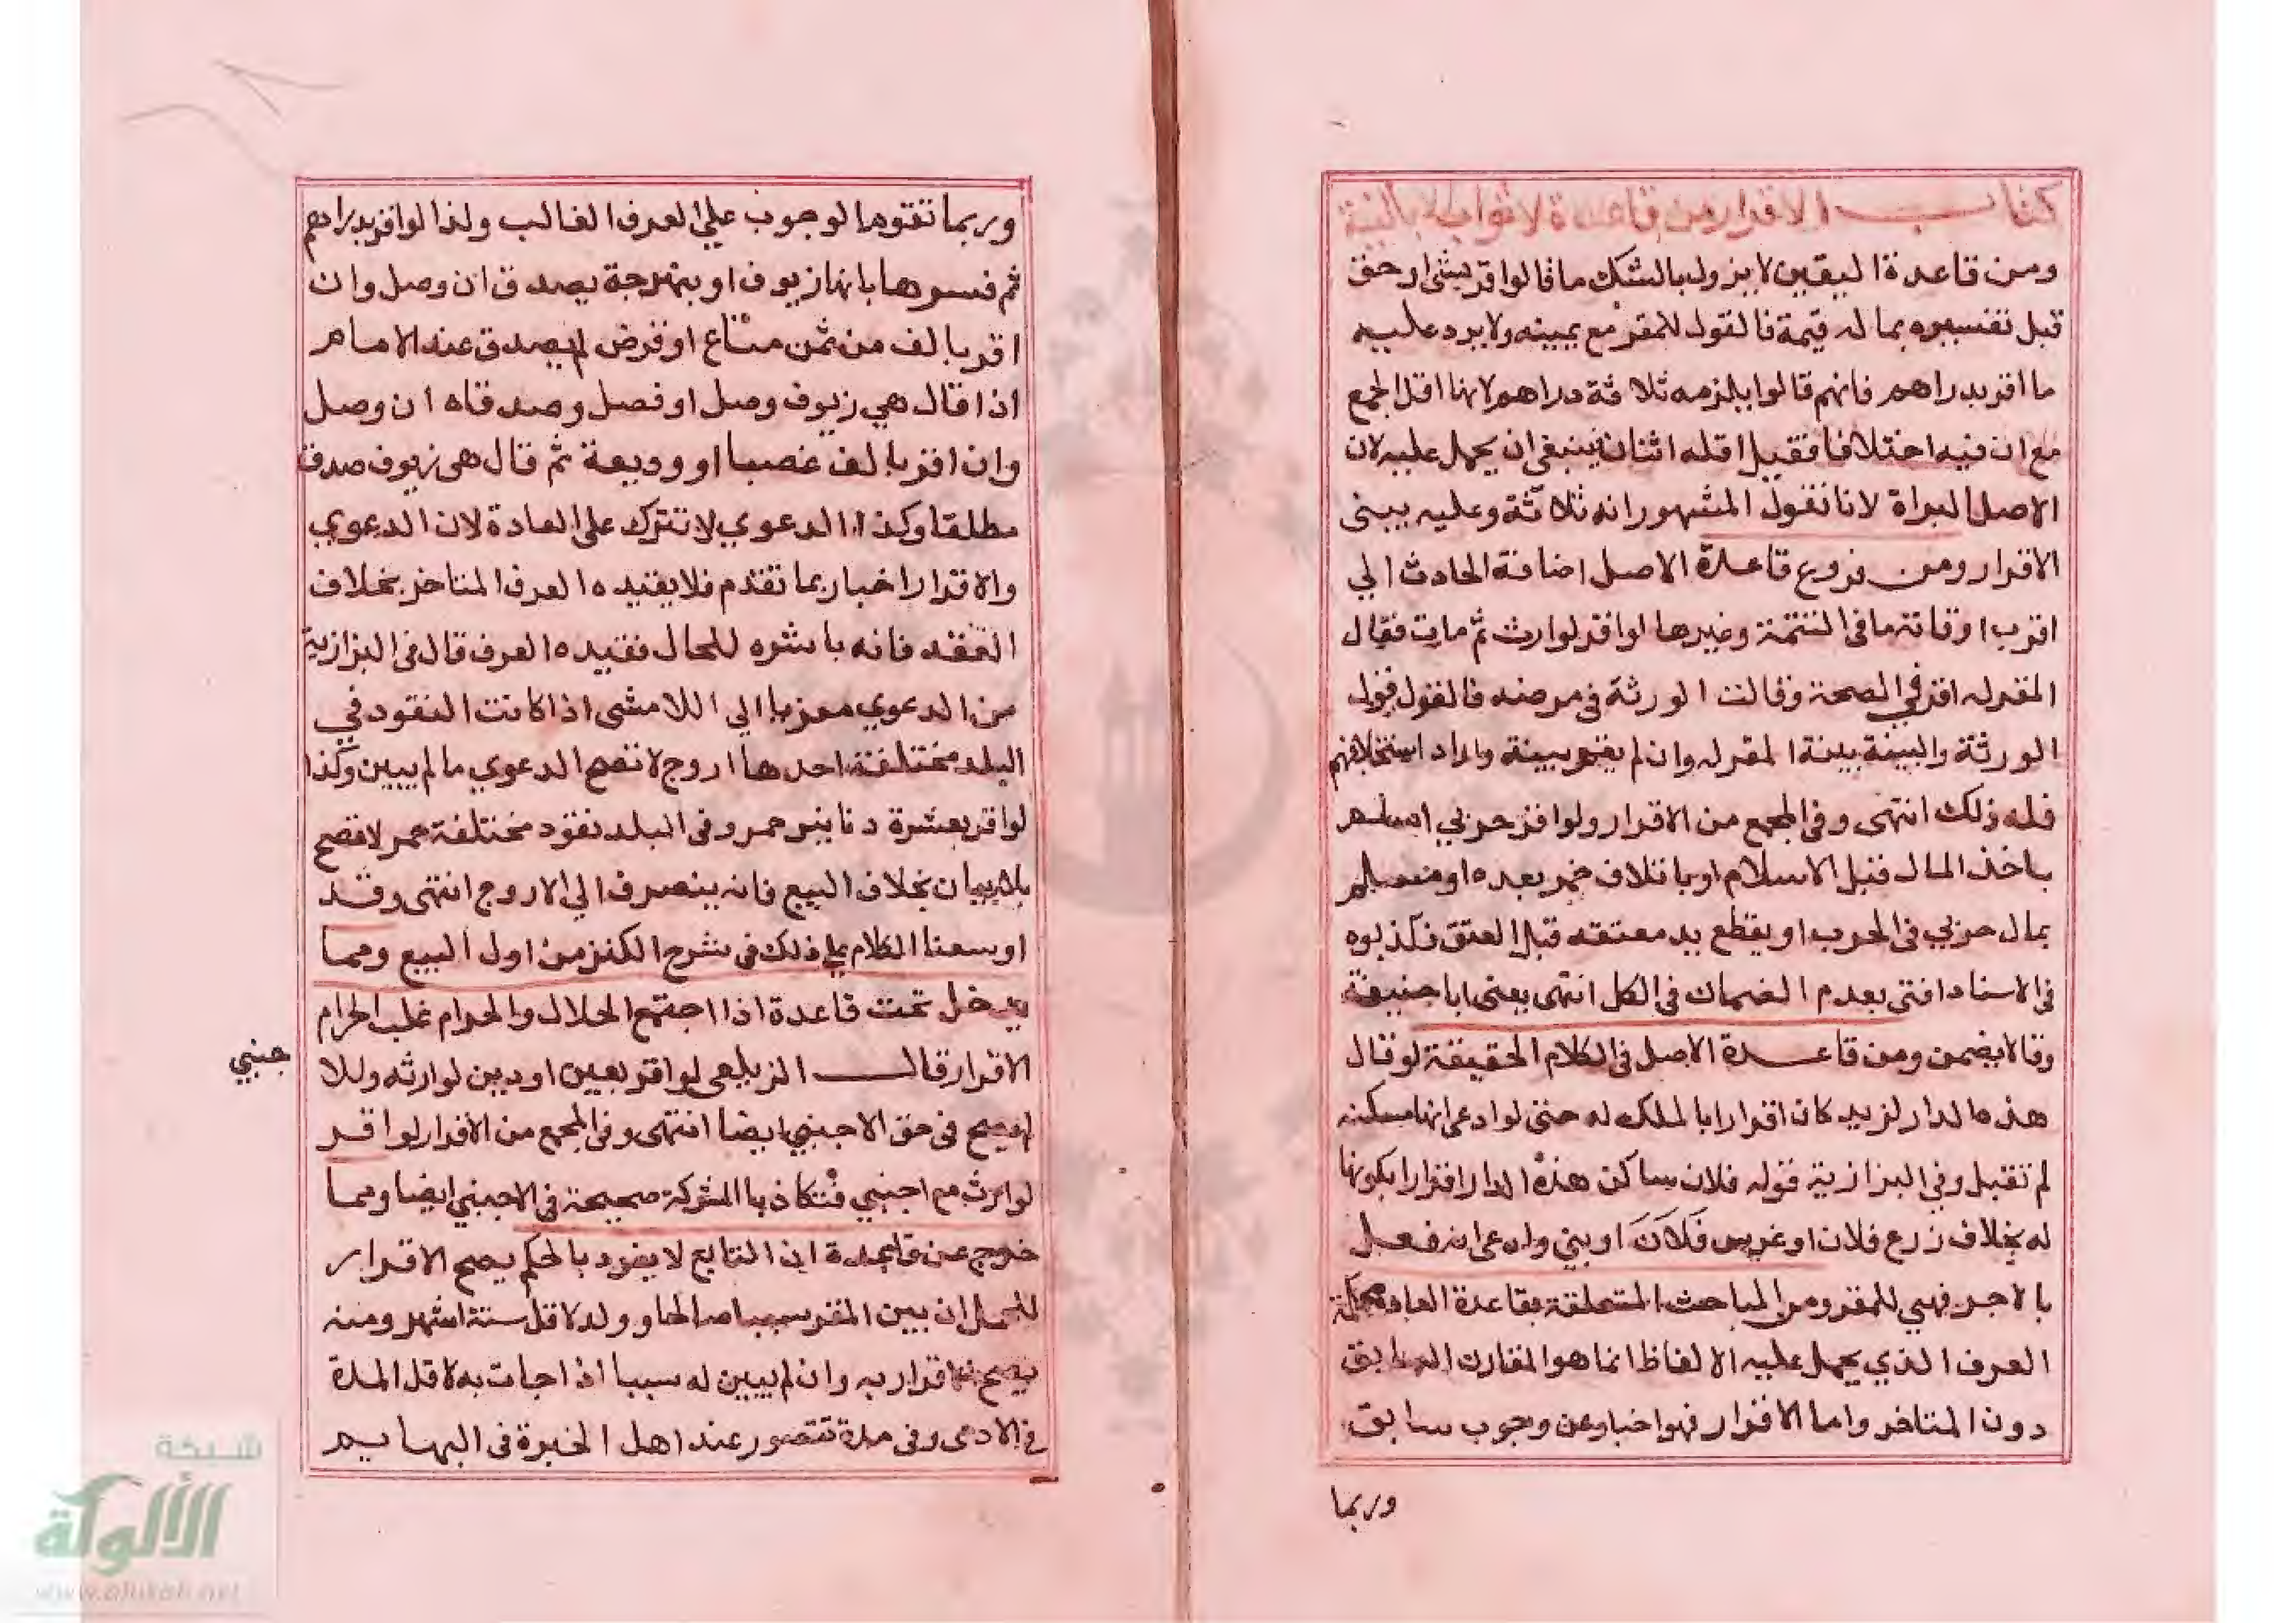 كتاب الاقرار من قاعدة لا ثواب الا بالنية
ومن قاعدة اليقين لا يزول بالشك ما قالوا اقر بشئ او حق
قبل تفسيره بما له قيمة فالقول للمقر مع يمينه ولا يرد عليه
ما اقر بدراهم فانهم قالوا يلزمه ثلاثة دراهم لانها اقل الجمع
مع ان فيه اختلافا فقيل اقله اثنان فينبغي ان يحمل عليه لان
الاصل البراة لانا نقول المشهور انه ثلاثة وعليه يبنى
الاقرار ومن فروع قاعدة الاصل اضافة الحادث الي
اقرب اوقاته ما في التتمة وغيرها لو اقر لوارث ثم مات فقال
المقر له اقر في الصحة وقالت الورثة في مرضه فالقول قول
الورثة والبينة بينة المقر له وان لم يقم بينة واراد استحلافهم
فله ذلك انتهى وفي المجمع من الاقرار ولو اقر حربي اسلم
باخذ المال قبل الاسلام او باتلاف خمر بعده او مسلم
بمال حربي في الحرب او بقطع يد معتقه قبل العتق فكذبوه
في الاسناد افتى بعدم الضمان في الكل انتهى يعني ابا حنيفة
وقالا يضمن ومن قاعدة الاصل في الكلام الحقيقة لو قال
هذه الدار لزيد كان اقرارا بالملك له حتى لو ادعى انها مسكنه
لم تقبل وفي البزازية قوله فلان ساكن هذه الدار اقرار بكونها
له بخلاف زرع فلان او غرس فلان او بنى وادعى انه فعل
بالاجر فهي للمقر ومن المباحث المتعلقة بقاعدة العادة محكمة
العرف الذي يحمل عليه الالفاظ انما هو المقارن السابق
دون المتاخر واما الاقرار فهو اخبار عن وجوب سابق
وربما
وربما تقوم الوجوب علي العرف الغالب ولذا لو اقر بدراهم
ثم فسرها بانها زيوف او بنهرجة يصدق ان وصل وان
اقر بالف من ثمن متاع او قرض لم يصدق عند الامام
اذا قال هي زيوف وصل او فصل وصدقاه ان وصل
وان اقر بالف غصبا او وديعة ثم قال هي زيوف صدق
مطلقا وكذا الدعوي لا تترك على العادة لان الدعوي
والاقرار اخبار بما تقدم فلا يقيده العرف المتاخر بخلاف
العقد فانه باشره للحال فقيده العرف قال في البزازية
من الدعوي معزيا الي اللامشى اذا كانت النقود في
البلد مختلفة احدها اروج لا تصح الدعوي ما لم يبين وكذا
لو اقر بعشرة دنانير حمر وفي البلد نقود مختلفة حمر لا تصح
بلا بيان بخلاف البيع فانه ينصرف الي الاروج انتهى وقد
اوسعنا الكلام على ذلك في شرح الكنز من اول البيع ومما
يدخل تحت قاعدة اذا اجتمع الحلال والحرام غلب الحرام
الاقرار قال الزيلعى لو اقر بعين او دين لوارثه وللا
جنبي
لم يصح في حق الاجنبي ايضا انتهى وفي المجمع من الاقرار لو اقر
لوارث مع اجنبي فتكاذبا الشركة صحيحة في الاجنبي ايضا ومما
خرج عن قاعدة ان التابع لا يفرد بالحكم يصح الاقرار
للحمل ان بين المقر سببا صالحا وولد لاقل ستة اشهر ومنه
يصح الاقرار به وان لم يبين له سببا اذا جات به لاقل المدة
في الادمى وفي مدة تتصور عند اهل الخبرة في البهايم
شبكة
الألوكة
www.alukah.net